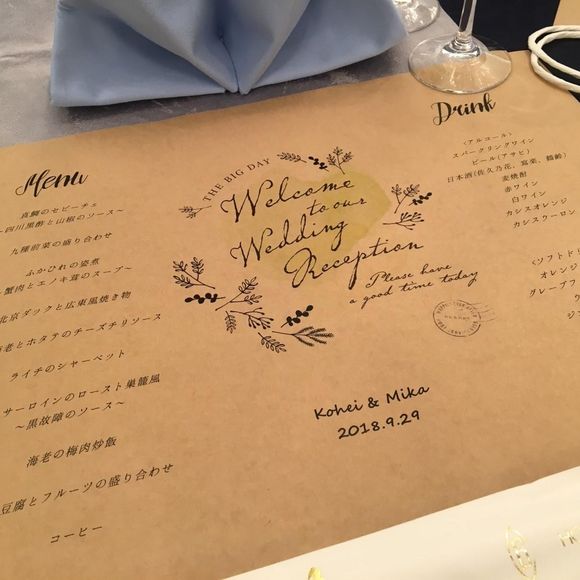 Menu
真鯛のセビーチェ
~四川黒酢と山椒のソース~
九種前菜の盛り合わせ
ふかひれの姿煮
~蟹肉とエノキ茸のスープ~
北京ダックと広東風焼き物
海老とホタテのチーズチリソース
ライチのシャーベット
サーロインのロースト巣籠風
~黒故障のソース~
海老の梅肉炒飯
豆腐とフルーツの盛り合わせ
コーヒー
THE BIG DAY
Welcome
to our
Wedding
Reception
Please have
a good time today
Kohei & Mika
2018.9.29
Drink
<アルコール>
スパークリングワイン
ビール(アサヒ)
日本酒(佐久乃花、寫楽、鶴齢)
麦焼酎
赤ワイン
白ワイン
カシスオレンジ
カシスウーロン
<ソフトド
オレンジ
グレープフ
ウ
ジ